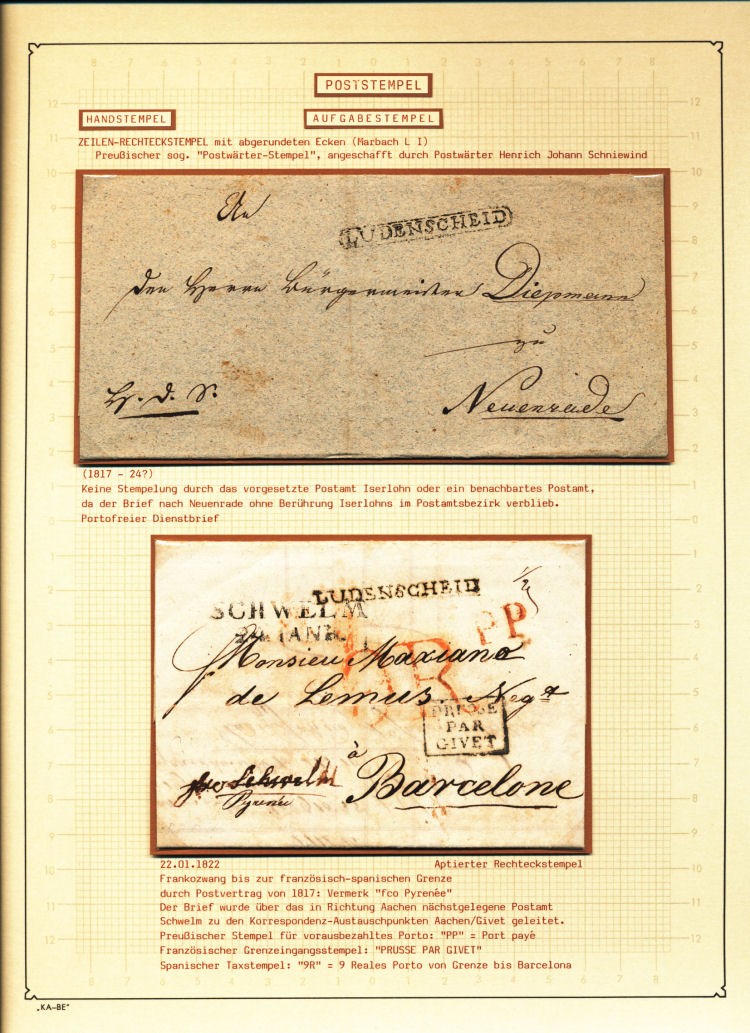 POSTSTEMPEL
HANDSTEMPEL
AUFGABESTEMPEL
ZEILEN-RECHTECKSTEMPEL mit abgerundeten Ecken (Marbach L I)
Preußischer sog. "Postwärter-Stempel", angeschafft durch Postwärter Henrich Johann Schniewind
An
LUDENSCHEID
den Herrn Bürgermeister Diepmann
zu
H. d. S.
Neuenrade
(1817 - 24?)
Keine Stempelung durch das vorgesetzte Postamt Iserlohn oder ein benachbartes Postamt,
da der Brief nach Neuenrade ohne Berührung Iserlohns im Postamtsbezirk verblieb.
Portofreier Dienstbrief
LUDENSCHEID
1/2
SCHWELM
22 IANR.
PP
9R
Monsieu Maxiano
de Lemus. Negt
PRUSSE
PAR
GIVET
à
fco Schwelm
Pyrenée
Barcelone
22.01.1822
Aptierter Rechteckstempel
Frankozwang bis zur französisch-spanischen Grenze
durch Postvertrag von 1817: Vermerk "fco Pyrenée"
Der Brief wurde über das in Richtung Aachen nächstgelegene Postamt
Schwelm zu den Korrespondenz-Austauschpunkten Aachen/Givet geleitet.
Preußischer Stempel für vorausbezahltes Porto: "PP" = Port payé
Französischer Grenzeingangsstempel: "PRUSSE PAR GIVET"
Spanischer Taxstempel: "9R" = 9 Reales Porto von Grenze bis Barcelona
„KA-BE"